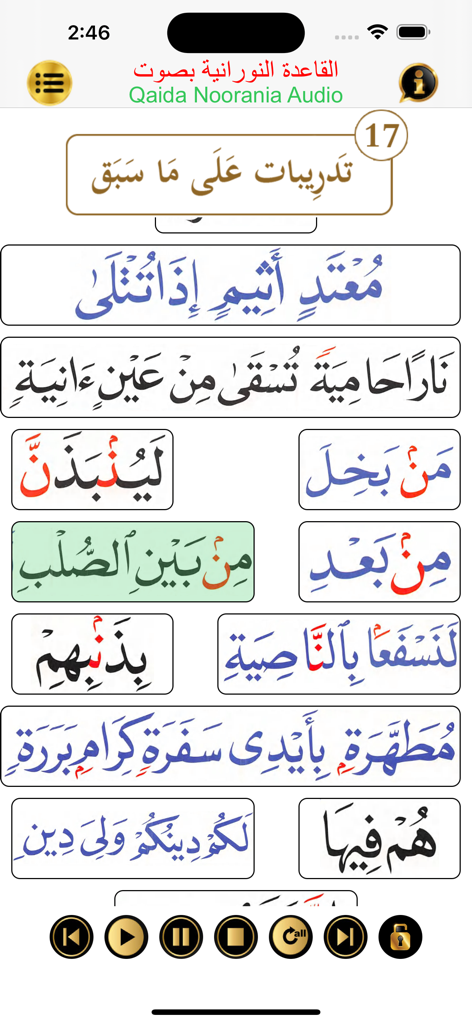 2:46
القاعدة النورانية بصوت
Qaida Noorania Audio
17
تَدَرِيبات عَلَى مَا سَبَق
مُعْتَدٍ أَثِيمٍ إِذَا تُتْلَىٰ
نَارًا حَامِيَةً تُسْقَىٰ مِنْ عَيْنٍ ءَانِيَةٍ
مَنۢ بَخِلَ
لَيُنۢبَذَنَّ
مِنۢ بَعْدِ
مِنۢ بَيْنِ ٱلصُّلْبِ
لَنَسْفَعَۢا بِٱلنَّاصِيَةِ
بِذَنۢبِهِمْ
مُطَهَّرَةٍۭ بِأَيْدِى سَفَرَةٍ كِرَامٍۭ بَرَرَةٍ
هُمْ فِيهَا
لَكُمْ دِينُكُمْ وَلِىَ دِينِ
all